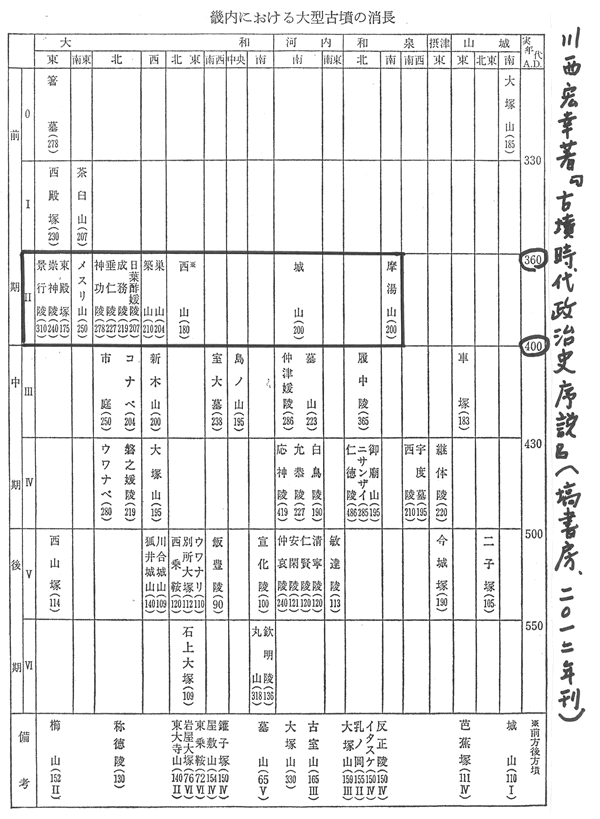 畿内における大型古墳の消長
大和 河内 和泉 摂津 山城 実年代A.D.
東 南東 北 西 北東 南西 中央 南 南 南東 北 南 南西 東 東 北東 南
前期 0
箸墓(278)
大塚山(185)
330
I
西殿塚(230)
茶臼山(207)
360
II
景行陵(310)
崇神陵(240)
東殿塚(175)
メスリ山(250)
神功陵(278)
垂仁陵(227)
成務陵(219)
日葉酢媛陵(207)
築山(210)
巣山(204)
西山※(180)
城山(200)
摩湯山(200)
400
中期 III
市庭(250)
コナベ(204)
新木山(200)
室大墓(238)
島ノ山(195)
仲津媛陵(286)
墓山(223)
履中陵(365)
車塚(183)
430
IV
ウワナベ(280)
磐之媛陵(219)
大塚山(195)
応神陵(419)
允恭陵(227)
白鳥陵(190)
仁徳陵(486)
ニサンザイ(285)
御廟山(195)
西陵(210)
宇度墓(195)
継体陵(220)
500
後期 V
西山塚(114)
狐井城山(140)
川合城山(109)
西乗鞍(120)
別所大塚(112)
ウワナリ(110)
飯豊陵(90)
宣化陵(100)
仲哀陵(240)
安閑陵(121)
仁賢陵(120)
清寧陵(120)
敏達陵(113)
今城塚(190)
二子塚(105)
550
VI
石上大塚(109)
丸山(318)
欽明陵(136)
備考
櫛山(152 II)
称徳陵(130)
東大寺山(140 II)
岩屋大塚(76 VI)
東乗鞍(72 VI)
屋敷山(154 IV)
鑵子塚(150 IV)
墓山(65 V)
大塚山(330)
古室山(165 III)
大塚山(159 III)
乳ノ岡(155 II)
イタスケ(150 IV)
反正陵(150 IV)
芭蕉塚(111 IV)
城山(110 I)
※前方後方墳
川西宏幸著『古墳時代政治史序説』(塙書房、二〇一二年刊)